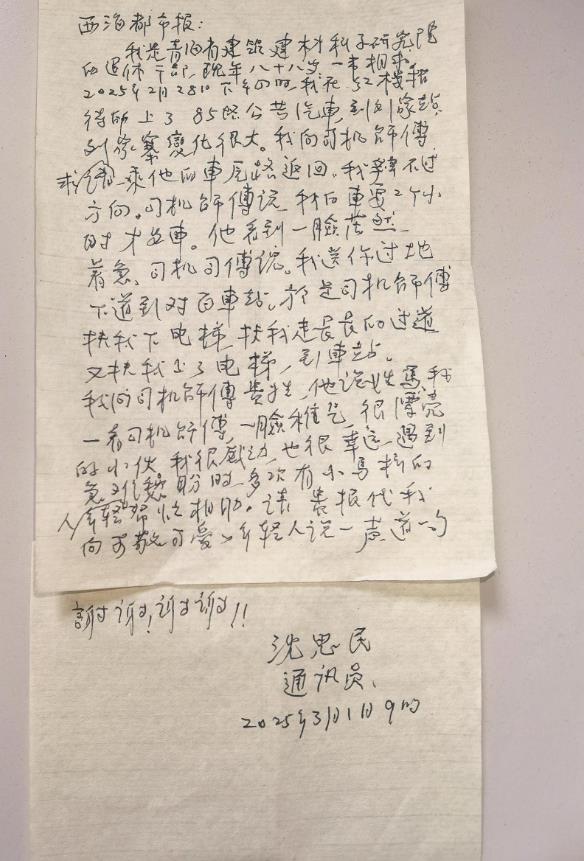 西海都市报：
我是青海省建筑建材科学研究院
的退休干部，现年八十八岁，一
2025年2月28日下午四时，我在32栋
待所上了85路公共汽車，到刘家
刘家寨變化很大。我向司机師傅
求情乘他的車尾路返回。我辨不过
方向。司机師傅说，我的車要2个小
时才发車。他看到一臉茫然
着急，司机司傅说。我送你过地
下道到对面車站。於是司机師傅
扶我下电梯，扶我走長長的过道
又扶我上了电梯，到車站。
我问司机師傅贵姓，他说姓馬，我
一看司机師傅，一臉稚气，很漂亮
的小伙，我很感动，也很幸运，遇到
急难愁盼时，多次有小馬样的
人年轻帮忙相助。请贵报代我
向可敬可愛年轻人说一声，道一句
謝谢！谢谢谢！！
沈忠民
通讯员、
2025年3月1日9时